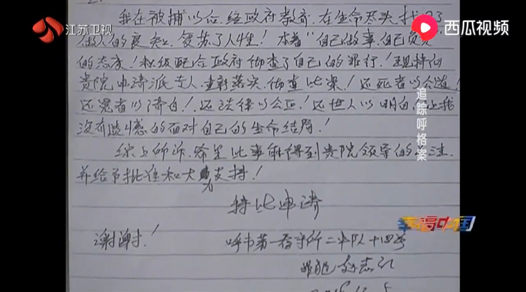 江苏卫视
西瓜视频
我在被捕以后，经政府教育，在生命尽头找回了
做人的良知，复苏了人性！本着“自己做事，自己负责”
的态度！积极配合政府彻查了自己的罪行！现特向
贵院申请派专人重新落实、彻查此案！还死者以公道！
还冤者以清白！还法律以公正！还世人以明白！让我
没有遗憾的面对自己的生命结局！
综上所诉，希望此事能得到贵院领导的关注，
并给予批准和大力支持！
特此申请
谢谢！
呼市第一看守所二中队十四号
赵志红
追踪呼格案